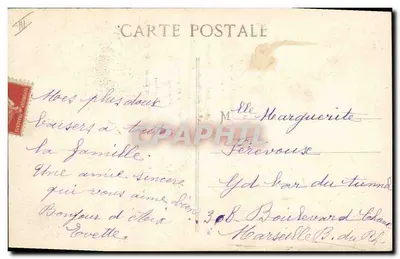 CARTE POSTALE
Mes plus doux
baisers à toute
la famille.
Une amie sincère
qui vous aime bien
Bonjour d'Aix
Evette.
Mlle Marguerite
Férévoux
Gd bar du tunnel
308 Boulevard
Marseille B. du Rh.
CPHPHILA